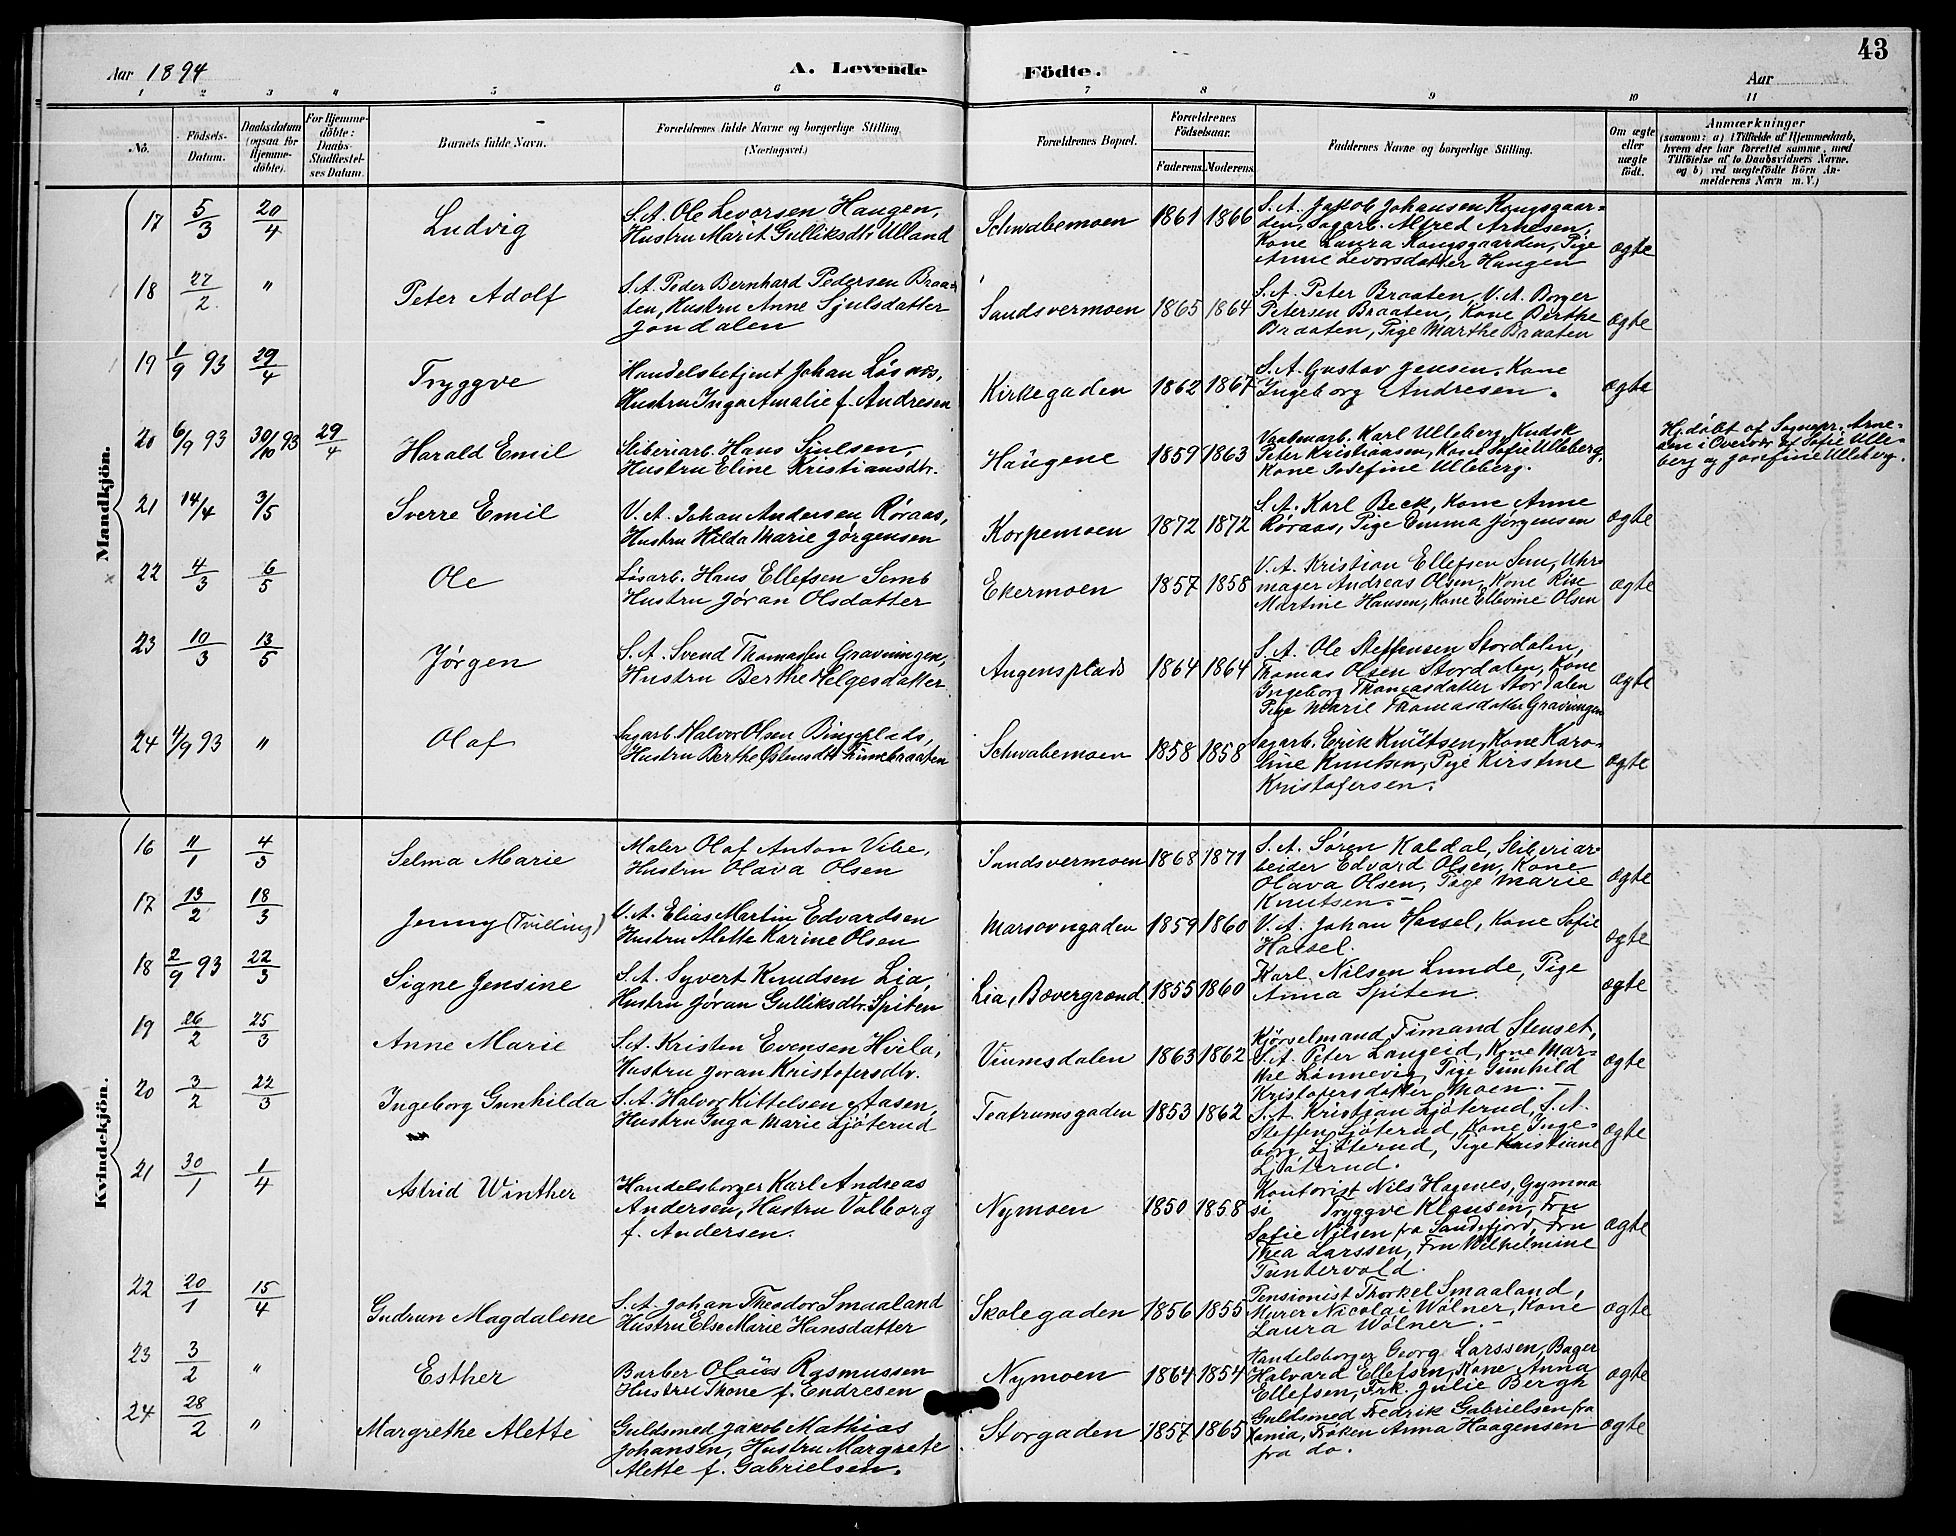 43
Aar 1894 A. Levende Födte. Aar
1 2 3 4 5 6 7 8 9 10 11
No.
Födsels-Datum.
Daabsdatum (ogsaa for Hjemme-döbte).
For Hjemme-döbte: Daabs-Stadfæstel-ses Datum.
Barnets fulde Navn.
Forældrenes fulde Navne og borgerlige Stilling. (Næringsvei.)
Forældrenes Bopæl.
Forældrenes Födselsaar.
Faderens. Moderens.
Faddernes Navne og borgerlige Stilling.
Om ægte eller uægte födt.
Anmærkninger
(saasom: a) i Tilfælde af Hjemmedaab,
hvem der har forrettet samme, med
Tilföielse af to Daabsvidners Navne.
og b) ved uægtefödte Börn An-
melderens Navn m. V.)
Mandkjön.
17 5/3 20/4 Ludvig
S.A. Ole Levorsen Haugen,
Hustru Marit Gulliksdtr Ulland
Schwabemoen 1861 1866
S.A. Jakob Johansen Kongsgaar-
den, Sagarb. Alfred Arnesen,
Kone Laura Kongsgaarden, Pige
Anne Levorsdatter Haugen
ægte
18 22/2 " Peter Adolf
S.A. Peder Bernhard Pedersen Braa-
ten, Hustru Anne Sjulsdatter
Jondalen
Sandsvermoen 1865 1864
S.A. Peter Braaten, V.A. Borger
Petersen Braaten, Kone Berthe
Braaten, Pige Marthe Braaten
ægte
19 1/9 93 29/4 Tryggve
Handelsbetjent Johan Løsnæs,
Hustru Inga Amalie f. Andresen
Kirkegaden 1862 1867
S.A. Gustav Jensen, Kone
Ingeborg Andresen.
ægte
20 6/9 93 30/10 93 29/4 Harald Emil
Sliberiarb. Hans Sjulsen,
Hustru Eline Kristiansdtr.
Haugene 1859 1863
Vaabenarb. Karl Ulleberg, Kudsk
Peter Kristiansen, Kone Sofie Ulleberg,
Kone Josefine Ulleberg.
ægte
Hj.døbt af Sognepr. Arne-
sen i Overvær af Sofie Ulle-
berg og Josefine Ulleberg.
21 14/4 3/5 Sverre Emil
V.A. Johan Andersen Røraas,
Hustru Hilda Marie Jørgensen
Korpemoen 1872 1872
S.A. Karl Beck, Kone Anne
Røraas, Pige Emma Jørgensen
ægte
22 4/3 6/5 Ole
Løsarb. Hans Ellefsen Semb
Hustru Jøran Olsdatter
Ekermoen 1857 1858
V.A. Kristian Ellefsen Sem, Uhr-
mager Andreas Olsen, Kone Rise
Martine Hansen, Kone Ellevine Olsen
ægte
23 10/3 13/5 Jørgen
S.A. Svend Thomassen Gravningen,
Hustru Berthe Helgesdatter
Augensplads 1864 1864
S.A. Ole Steffensen Stordalen,
Thomas Olsen Stordalen, Kone
Ingeborg Thomasdatter Stordalen
Pige Marie Thomasdatter Gravningen
ægte
24 4/9 93 " Olaf
Sagarb. Halvor Olsen Bingeplads,
Hustru Berthe Østensdtr Finnebraaten
Schwabemoen 1858 1858
Sagarb. Erik Knutsen, Kone Karo-
line Knutsen, Pige Kirstine
Kristofersen.
ægte
Kvindekjön.
16 11/1 4/3 Selma Marie
Maler Olaf Anton Vibe,
Hustru Olava Olsen
Sandsvermoen 1868 1871
S.A. Søren Kaldal, Sliberiar-
beider Edvard Olsen, Kone
Olava Olsen, Pige Marie
Knutsen.-
ægte
17 13/2 18/3 Jenny (Tvilling)
V.A. Elias Martin Edvardsen
Hustru Alette Karine Olsen
Marsovngaden 1859 1860
V.A. Johan Hassel, Kone Sofie
Hassel.
ægte
18 2/9 93 22/3 Signe Jensine
S.A. Syvert Knudsen Lia,
Hustru Jøran Gulliksdtr. Spiten
Lia, Bævergrænd 1855 1860
Karl Nilsen Lunde, Pige
Anna Spiten.
ægte
19 26/2 25/3 Anne Marie
S.A. Kristen Evensen Hvila,
Hustru Jøran Kristofersdtr.
Viumsdalen 1863 1862
Kjørselmand Timand Stenset,
S.A. Peter Langeid, Kone Mar-
the Lønnevig, Pige Gunhild
Kristofersdatter Moen.-
ægte
20 3/2 22/3 Ingeborg Gunhilda
S.A. Halvor Kittelsen Aasen,
Hustru Inga Marie Ljøterud
Teatrumsgaden 1853 1862
S.A. Kristian Ljøterud, S.A.
Steffen Ljøterud, Kone Inge-
borg Ljøterud, Pige Kristiane
Ljøterud.
ægte
21 30/1 1/4 Astrid Winther
Handelsborger Karl Andreas
Andersen, Hustru Valborg
f. Andersen.
Nymoen 1850 1858
Kontorist Nils Hagenes, Gymna
si Tryggve Klausen, Fru
Sofie Nilsen fra Sandefjord, Fru
Thea Larssen, Fru Wilhelmine
Tandervold.
ægte
22 20/1 15/4 Gudrun Magdalene
S.A. Johan Theodor Smaaland
Hustru Else Marie Hansdatter
Skolegaden 1856 1855
Pensionist Thorkel Smaaland,
Murer Nicolai Wølner, Kone
Laura Wølner.-
ægte
23 3/2 " Esther
Barber Olaus Rasmussen
Hustru Thone f. Endresen
Nymoen 1864 1854
Handelsborger Georg Larssen, Bager
Halvard Ellefsen, Kone Anna
Ellefsen, Frk. Julie Bergh
ægte
24 28/2 " Margrethe Alette
Guldsmed Jakob Mathias
Johansen, Hustru Margrete
Alette f. Gabrielsen.
Storgaden 1857 1865
Guldsmed Fredrik Gabrielsen fra
Xania, Frøken Anna Haagensen
fra do.
ægte